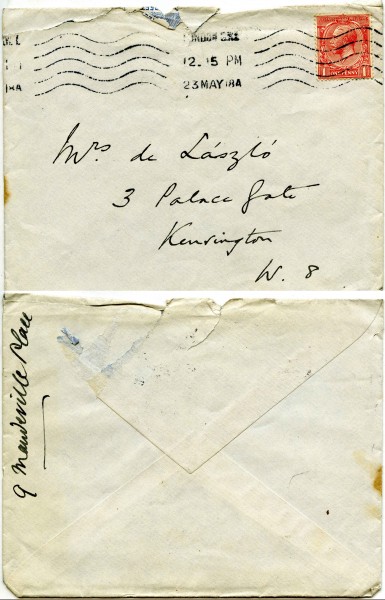 LONDON S.W.1
12.15 PM
23 MAY 18A
Mrs de László
3 Palace Gate
Kensington
W. 8
9 Mandeville Place